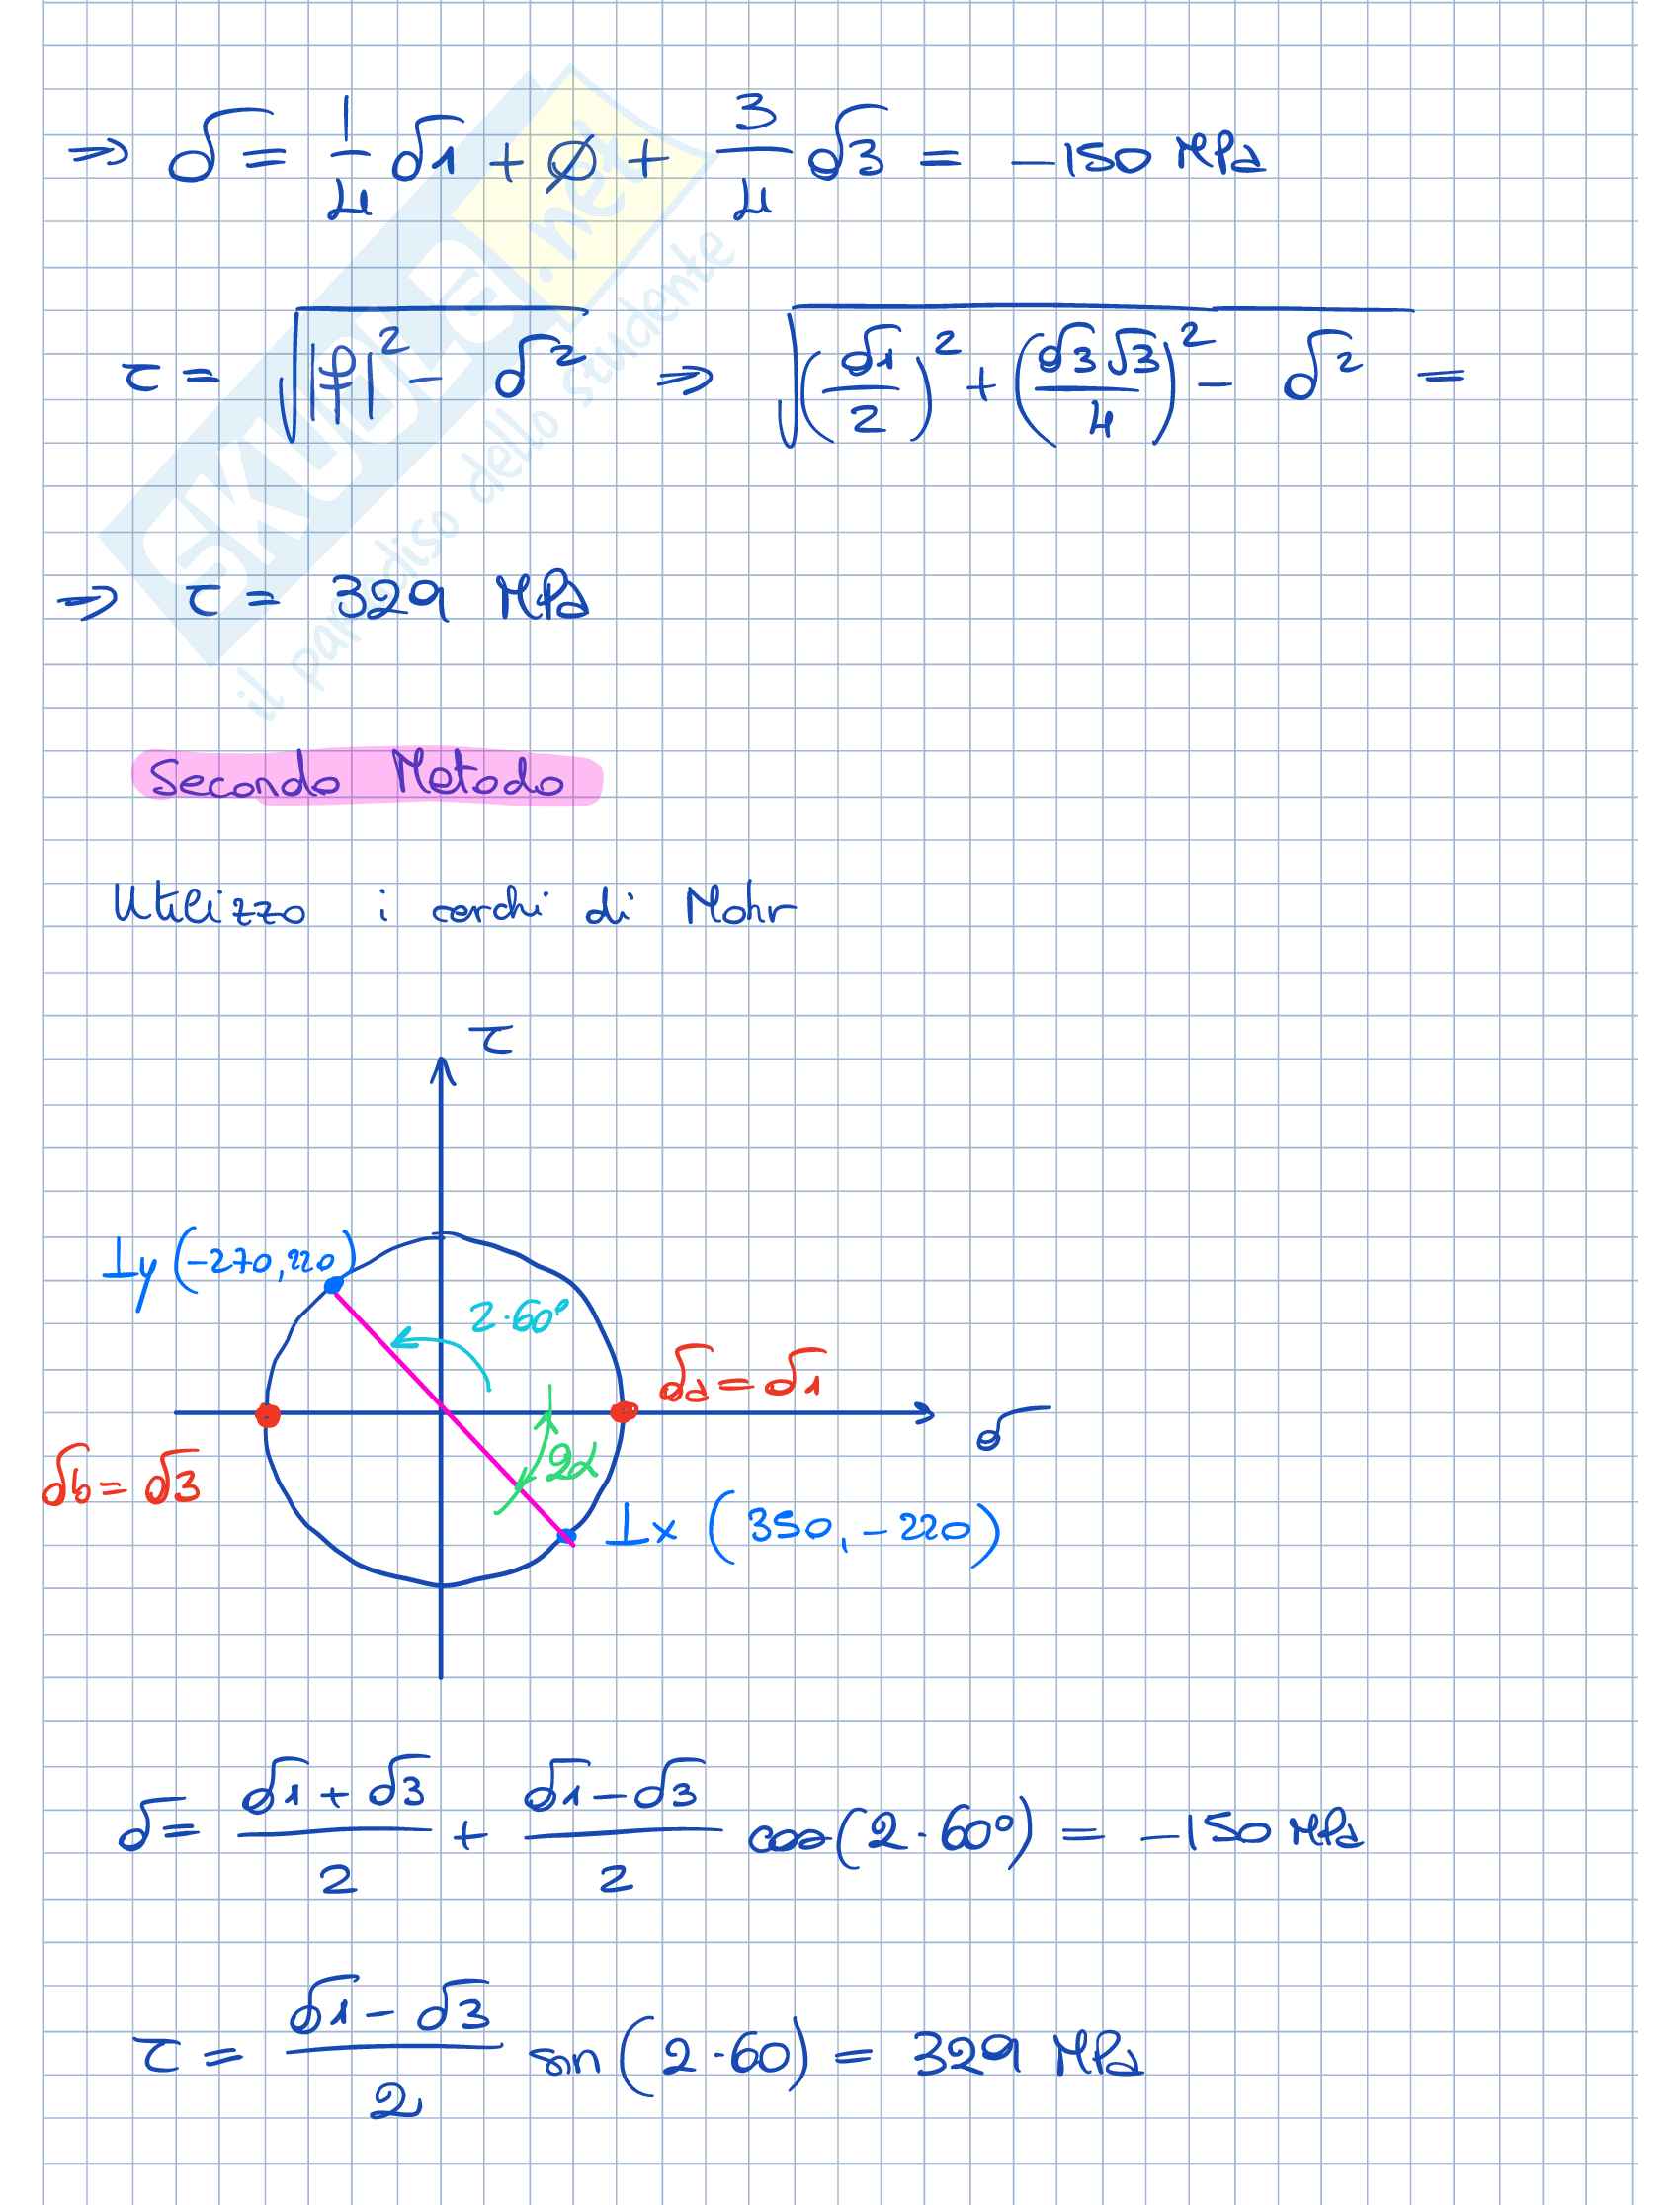 ⇒ σ = 1/4 σ1 + ∅ + 3/4 σ3 = -150 MPa
τ = √(|φ|² - σ²) ⇒ √((σ1/2)² + (σ3√3/4)² - σ²) =
⇒ τ = 329 MPa
Secondo Metodo
Utilizzo i cerchi di Mohr
τ
⊥y (-270,220)
2·60°
σa = σ1
σ
σb = σ3
2α
⊥x (350,-220)
σ = (σ1 + σ3)/2 + (σ1 - σ3)/2 cos(2·60°) = -150 MPa
τ = (σ1 - σ3)/2 sin(2·60) = 329 MPa
SKUOLA.net
il paradiso dello studente